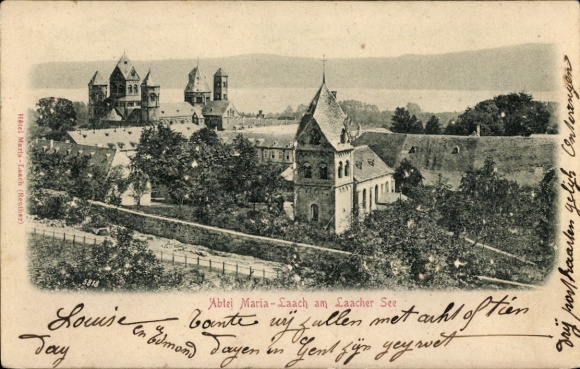 Hôtel Maria-Laach (Reutner)
5818
Abtei Maria-Laach am Laacher See
Louise en Edmond Tante wij zullen met acht of tien
dag dagen in Gent zijn gegroet
Wij postkaarten gelijk Ontvangen